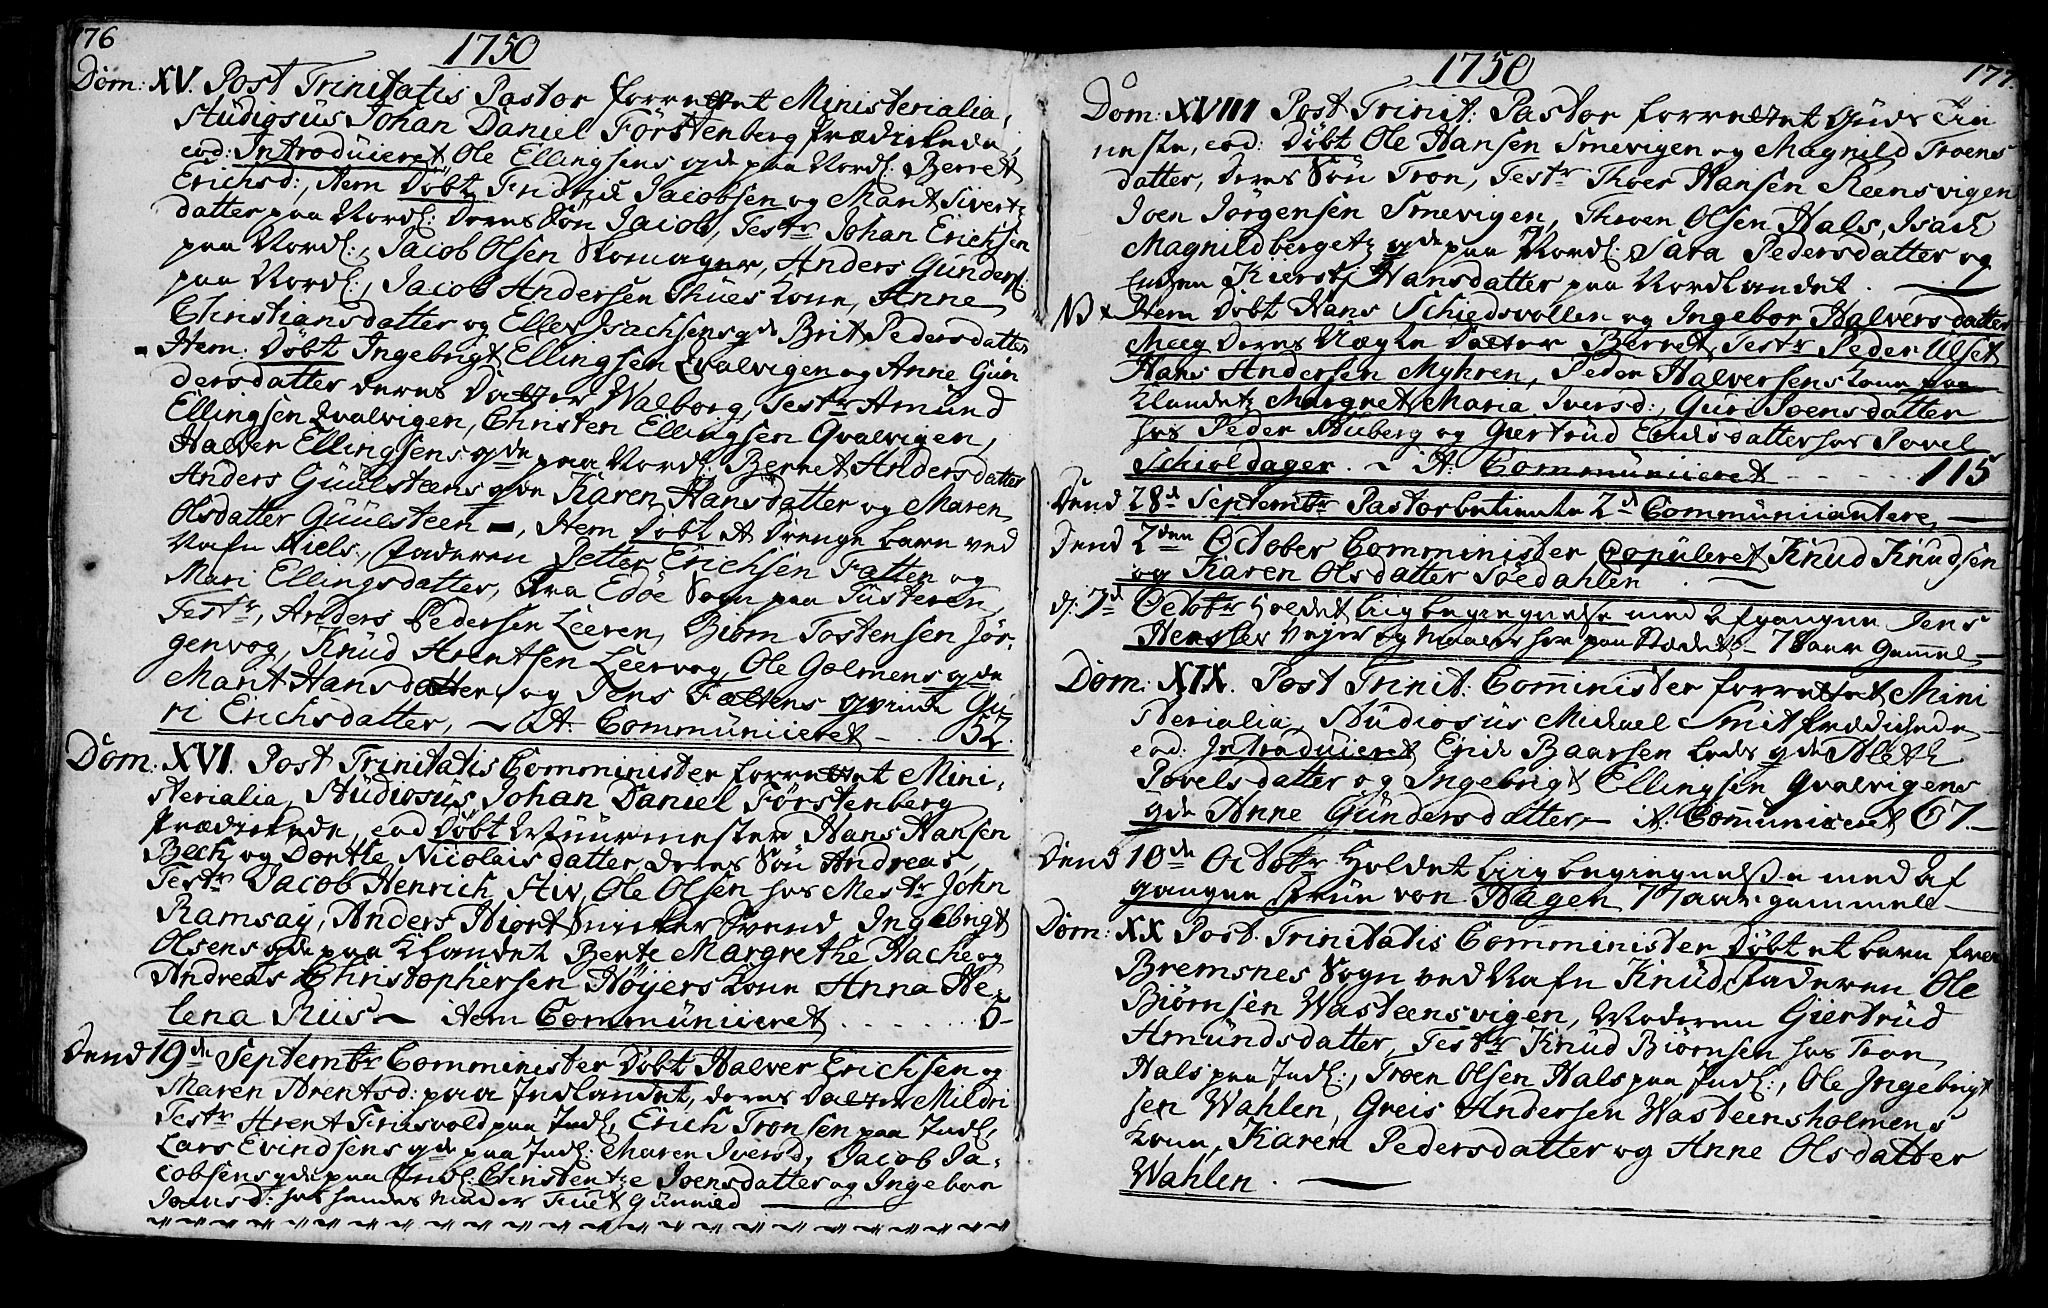 176
1750
Dom: XV. Post Trinitatis Pastor forrettet Ministerialia,
Studiosus Johan Daniel Förstenberg Prædikede,
eod: Introduceret Ole Ellingsens qde paa Nordl: Berret
Erichsd:, Item Döbt Fridrich Jacobsen og Marit Siverts
datter paa Nordl: Deres Sön Jacob, Testr Johan Erichsen
paa Nordl:, Jacob Olsen Romager, Anders Gunders:
paa Nordl:, Jacob Andersen Thues Kone, Anne
Christiansdatter og Ellev Isachsens qde Brit Pedersdatter
Item: Döbt Ingebrigt Ellingsen Qvalvigen og Anne Gun
dersdatter deres Datter Walborg, Testr Amund
Ellingsen Qvalvigen, Christen Ellingsen Qvalvigen,
Halver Ellingsens qde paa Nordl: Berret Andersdatter
Anders Guulsteens qde Karen Hansdatter og Maren
Olsdatter Guulsteen, Item Döbt et Drenge barn ved
Nafn Niels, Faderen Petter Erichsen Fatten og
Mari Ellingsdatter, fra Edöe Sogn paa Tusteren,
Testr, Anders Pedersen Leeren, Biörn Tostensen Jör-
genvog, Knud Arentsen Leervog, Ole Golmens qde
Marit Hansdatter, og Jens Fættens qvinde Gu-
ri Erichsdatter, It: Communiceret 52.
Dom: XVI. Post Trinitatis Comminister forrettet Mini-
sterialia, Studiosus Johan Daniel Förstenberg
Prædikede, eod Döbt Muurmester Hans Hansen
Beck, og Dorthe Nicolaisdatter deres Sön Andreas,
Testr Jacob Henrich Stiv, Ole Olsen hos Mestr John
Ramsay, Anders Hiort Snicker Svend Ingebrigt
Olsens qde paa Klandet Berte Margrethe Hacke og
Andreas Christophersen Höyers Kone Anna He-
lena Riis Item Communiceret 5
Dend 19de Septembr Comminister Döbt Halver Erichsen og
Maren Arentsd: paa Indlandet, deres Datter Mildri
Testr Arent Frisvold paa Indl, Erich Tronsen paa Indl,
Lars Evindsens qde paa Indl: Maren Iversd, Jacob Ja-
cobsens qde paa Indl: Christentze Joensdatter og Ingebor
Joensd: hos hendes Moder Gunnild
177.
1750
Dom: XVIII Post Trinit: Pastor forrettet Guds Tie
neste, eod: Döbt Ole Hansen Smevigen og Magnild Troens
datter, Deres Sön Tron, Testr Thoer Hansen Reensvigen
Joen Jörgensen Smevigen, Throen Olsen Hals, Isach
Magnildbergets qde paa Nordl: Sara Pedersdatter og
Enken Kierst Hansdatter paa Nordlandet.
NB Item Döbt Hans Schiedsvollen og Ingebor Halversdatter
Meeg Deres Uægte Datter Berret, Testr Peder Ulset
Hans Andersen Myhren, Peder Halversens Kone paa
Klandet Margret Maria Iversd:, Guri Joensdatter
hos Peder Auberg og Giertrud Knudsdatter hos Povel
Schioldager. It: Communiceret 115
Dend 28de Septembr Pastor betiente 2de Communicantere,
Dend 2den October Comminister Copuleret Knud Knudsen
og Karen Olsdatter Söedahlen
d: 7de Octobr Holdet Liigbegiengnelse med Afgangne Jens
Hensler Veyer og Maaler her paa Stædet 78 aar Gammel
Dom: XIX. Post Trinit: Comminister forrettet Mini
sterialia, Studiosus Michael Smit Prædickede
eod: Introduceret Erich Baarsen qde Aleth
Povelsdatter og Ingebrigt Ellingsen Qvalvigens
qde Anne Gundersdatter, It: Communiceret 67.
Dend 10de Octobr Holdet Liigbegiengnelse med Af
gangne Frue von Hagen 77 aar gammel
Dom: XX Post Trinitatis Comminister Döbt et barn fra
Bremsnes Sogn ved Nafn Knud, Faderen Ole
Biörnsen Wasteensvigen, Moderen Giertrud
Amundsdatter, Testr Knud Biörnsen hos Tron
Hals paa Indl:, Troen Olsen Hals paa Indl:, Ole Ingebrigt
sen Wahlen, Greis Andersen Wasteensholmens
Kone, Karen Pedersdatter og Anne Olsdatter
Wahlen.